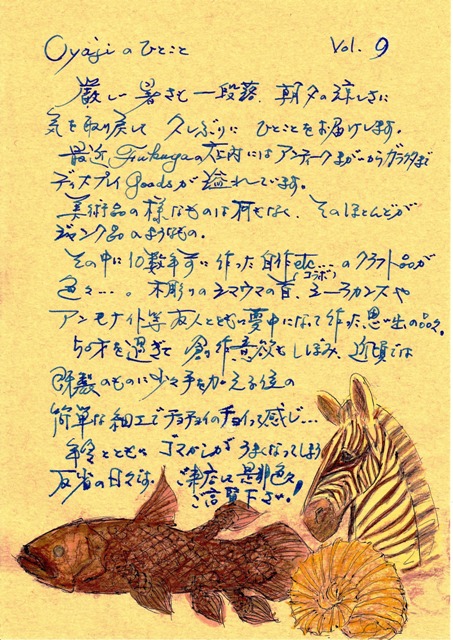 Oyajiのひとこと Vol. 9
厳しい暑さも一段落、朝夕の涼しさに
気を取り戻して 久しぶりに ひとことをお届けします。
最近 Fukugaの店内にはアンティークまがいからガラクタまで
ディスプレイgoodsが溢れてます。
美術品の様なものは何もなく、そのほとんどが
ジャンク品のようなもの。
その中に10数年前に作った自作etc...(コラボ)のクラフト品が
色々...。木彫りのシマウマの首、シーラカンスや
アンモナイト等 友人とともに夢中になって作った思い出の品々。
50才を過ぎて 創作意欲もしぼみ、近頃では
既製のものに少々手を加える位の
簡単な細工でチョチョイのチョイって感じ...
年令とともに ゴマカシが うまくなってしまう
反省の日々です。ご来店て是非色々
ご高覧下さい!